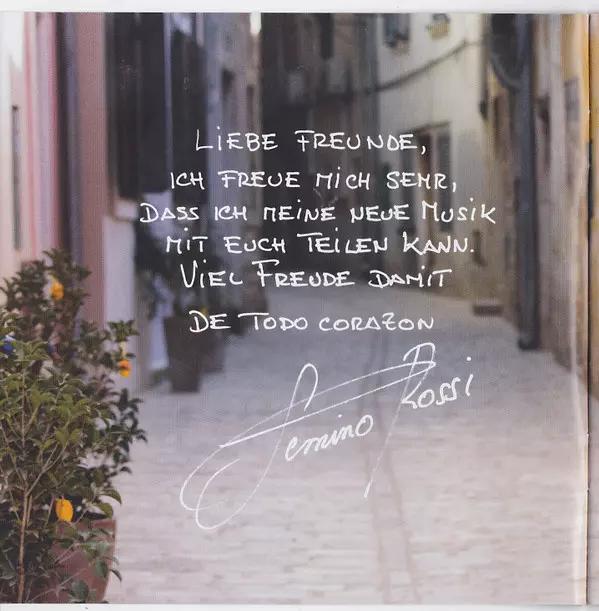 LIEBE FREUNDE,
ICH FREUE MICH SEHR,
DASS ICH MEINE NEUE MUSIK
MIT EUCH TEILEN KANN.
VIEL FREUDE DAMIT
DE TODO CORAZON
Semino Rossi